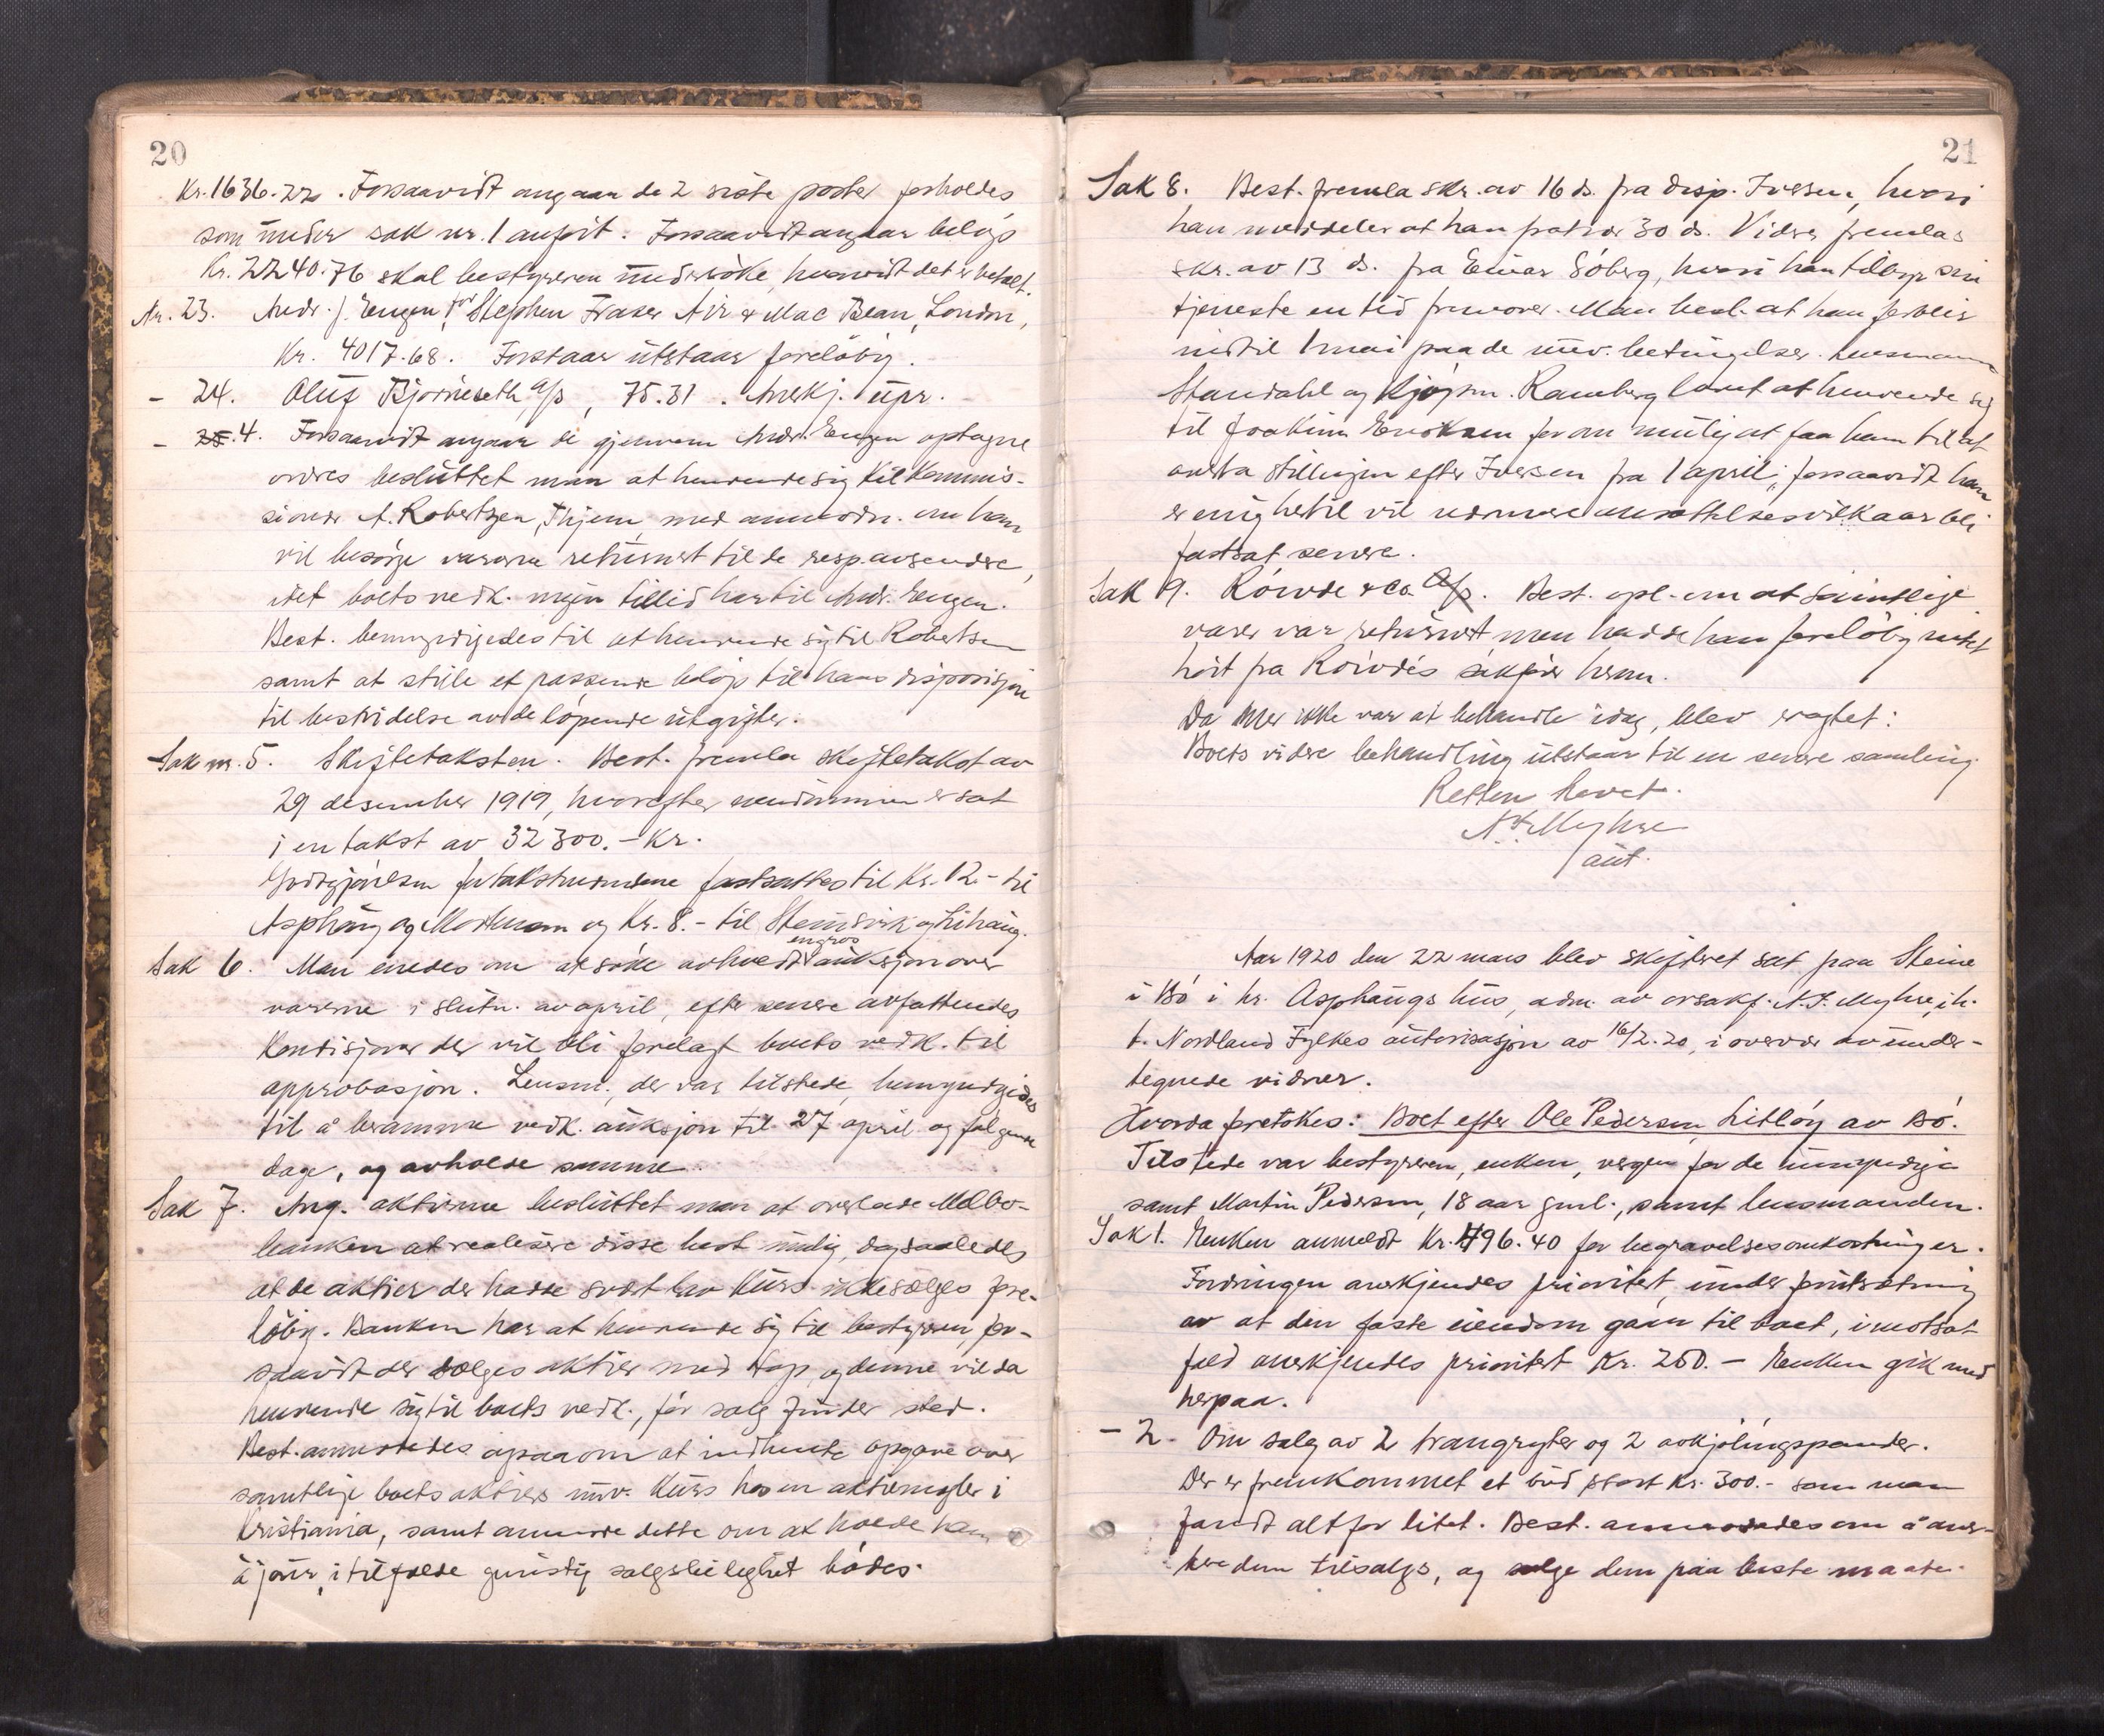 20
Kr. 1636.22. Forsaavidt angaar de 2 siste poster forholdes
som under sak nr. 1 anført. Forsaavidt angaar beløp
Kr. 2240.76 skal bestyreren undersöke, hvorvidt det er betalt.
Nr. 23. Andr. J. Engen for Stephen Fraser & Mac Bean, London,
Kr. 4017.68. Forstaar utstaar foreløbig.
- 24. Oluf Bjørneseth a/s, 75.31. Anerkj. upr.
- 4. Forsaavidt angaar de gjennem Andr. Engen optagne
ordres besluttet man at henvende sig til Kommis-
sionær A. Robertsen, Thjem, med anmodn. om han
vil besørge varerne returnert til de resp. avsendere,
idet boets vedk. ingen tillid har til Andr. Engen.
Best. bemyndigedes til at henvende sig til Robertsen
samt at stille et passende beløp til hans disposisjon
til bestridelse av de løpende utgifter.
Sak nr. 5. Skiftetaksten. Best. fremla skiftetakst av
29 desember 1919, hvorefter eiendommen er sat
i en takst av 32300.- Kr.
Godtgjørelsen for takstmændene fastsattes til Kr. 12.- til
Asphaug og Mortensen og Kr. 8.- til Steinsvik og Lihaug.
Sak 6. Man enedes om at søke avholdt engros auksjon over
varerne i slutn. av april, efter senere avfattendes
Kondisjoner der vil bli forelagt boets vedk. til
approbasjon. Lensm., der var tilstede, bemyndigedes
til å beramme vedk. auksjon til 27 april og følgende
dage, og avholde samme.
Sak 7. Ang. aktierne besluttet man at overlade Melbo-
banken at realisere disse best mulig, dog saaledes
at de aktier der hadde svært lav kurs ikke sælges fore-
løbig. Banken har at henvende sig til bestyreren, for-
saavidt der sælges aktier med tap, og denne vil da
henvende sig til boets vedk., før salg finder sted.
Best. anmodedes ogsaa om at indhente opgave over
samtlige boets aktiers nuv. kurs hos en aktiemegler i
Kristiania, samt anmode dette om at holde ham
à jour, i tilfælde gunstig salgsleilighet bødes.
21
Sak 8. Best. fremla skr. av 16 ds. fra disp. Iversen, hvori
han meddeler at han fratrær 30 ds. Videre fremlas
skr. av 13 ds. fra Einar Søberg, hvori han tilbyr sin
tjeneste en tid fremover. Man besl. at han forblir
indtil 1 mai paa de nuv. betingelser. Lensmann
Standahl og Kjøpm. Ramberg lovet at henvende sig
til Joakim Eriksen for om mulig at faa ham til at
overta stillingen efter Iversen fra 1 april; forsaavidt han
er enig hertil vil nærmere ansættelsesvilkaar bli
fastsat senere.
Sak 9. Røivde & Co. A/s. Best. opl. om at samtlige
varer var returnert men hadde han foreløbig intet
hørt fra Røivdes sakfører herom.
Da mer ikke var at behandle idag, blev vedtet:
Boets videre behandling utstaar til en senere samling.
Retten hevet.
N. J. Myhre
aut.
Aar 1920 den 22 mars blev skifteret sat paa Steine
i Bø i hr. Asphaugs hus, adm. av orsakf. N. J. Myhre, ih.
t. Nordland Fylkes autorisasjon av 16/2.20, i overvær av under-
tegnede vidner.
Hvorda foretokes: Boet efter Ole Pedersen, Litløy av Bø.
Tilstede var bestyreren, enken, vergen for de umyndige
samt Martin Pedersen, 18 aar gml., samt lensmanden.
Sak 1. Enken anmeldt Kr. 496.40 for begravelsesomkostninger.
Fordringen anerkjendes prioritert, under forutsætning
av at den faste eiendom gaar til boet, i motsat
fald anerkjendes prioritert Kr. 250.- Enken gik med
herpaa.
- 2. Om salg av 2 trangryter og 2 avkjølingspander.
Der er fremkommet et bud stort Kr. 300.- som man
fandt altfor litet. Best. anmodedes om å aver-
tere dem tilsalgs, og selge dem paa beste maate.